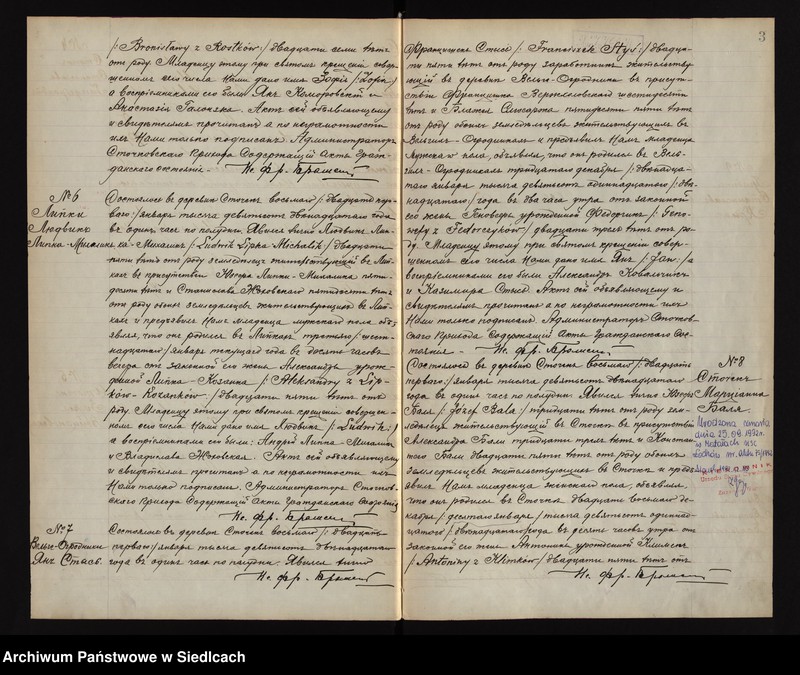 /: Bronisławy z Rostków:/ двадцати семи лѣтъ
отъ роду. Младенцу этому при святомъ крещеніи совер-
шенномъ сего числа Нами дано имя Зофія /: Zofia :/
а воспріемниками его были Янъ Коморовскій и
Анастазія Голозка. Актъ сей объявляющему
и свидѣтелямъ прочитанъ а по неграмотности
ихъ Нами только подписанъ. Администраторъ
Сточковскаго Прихода Содержащій Акты Граж-
данскаго состоянія. Кс. Фр.
№ 6
Липки
Людвикъ
Липка-Михаликъ
Состоялось въ деревнѣ Сточекъ восьмаго /: двадцать пер-
ваго :/ января тысяча девятьсотъ двѣнадцатаго года
въ одинъ часъ по полудни. Явился лично Людвикъ Лип-
ка-Михаликъ /: Ludwik Lipka Michalik :/ двадцати
пяти лѣтъ отъ роду земледѣлецъ жительствующій въ Лип-
кахъ въ присутствіи Липки-Михалика пяти-
десяти лѣтъ и Станислава Жоховскаго пятидесяти лѣтъ
отъ роду обоихъ земледѣльцевъ жительствующихъ въ Лип-
кахъ и предъявилъ Намъ младенца мужескаго пола объ-
являя, что онъ родился въ Липкахъ третьяго /: шест-
надцатаго :/ января текущаго года въ десять часовъ
вечера отъ законной его жены Александры урож-
денной Липка-Козанка /: Aleksandry z Lip-
ków-Kozanków :/ двадцати пяти лѣтъ отъ
роду. Младенцу этому при святомъ крещеніи совершен-
номъ сего числа Нами дано имя Людвикъ /: Ludwik :/
а воспріемниками его были: Андрей Липка-Михаликъ
и Владислава Жоховская. Актъ сей объявляющему
и свидѣтелямъ прочитанъ а по неграмотности ихъ
Нами только подписанъ. Администраторъ Сточков-
скаго Прихода Содержащій Акты Гражданскаго Состоянія
Кс. Фр.
№ 7
Вельге-Огродники
Янъ Стысь.
Состоялось въ деревнѣ Сточекъ восьмаго /: двадцать
перваго :/ января тысяча девятьсотъ двѣнадцатаго
года въ одинъ часъ по полудни. Явился лично
Кс. Фр.
3
Францишекъ Стысь /: Franciszek Styś :/ двадца-
ти пяти лѣтъ отъ роду заработникъ жительству-
ющій въ деревнѣ Вельге-Огродники въ присут-
ствіи Францишка шестидесяти
лѣтъ и Слюсарека пятидесяти пяти лѣтъ
отъ роду обоихъ земледѣльцевъ жительствующихъ въ
Вельгихъ-Огродникахъ и предъявилъ Намъ младенца
мужескаго пола, объявляя, что онъ родился въ Вель-
гихъ-Огродникахъ тридцатаго декабря /: двѣнадца-
таго января тысяча девятьсотъ одиннадцатаго /: двѣ-
надцатаго :/ года въ два часа утра отъ законной
его жены Геновефы урожденной Федорчикъ /: Geno-
wefy z Fedorczyków :/ двадцати трехъ лѣтъ отъ ро-
ду. Младенцу этому при святомъ крещеніи совер-
шенномъ сего числа Нами дано имя Янъ /: Jan :/ а
воспріемниками его были Александръ Ковальчикъ
и Казимира Стысь. Актъ сей объявляющему и
свидѣтелямъ прочитанъ а по неграмотности ихъ
Нами только подписанъ. Администраторъ Сточков-
скаго Прихода Содержащій Акты Гражданскаго Сос-
тоянія. Кс. Фр.
№ 8
Сточекъ
Марціанна
Баля.
Состоялось въ деревнѣ Сточекъ восьмаго /: двадцать
перваго :/ января тысяча девятьсотъ двѣнадцатаго
года въ одинъ часъ по полудни. Явился лично Юзефъ
Баля /: Józef Bala :/ тридцати лѣтъ отъ роду зем-
ледѣлецъ жительствующій въ Сточкѣ въ присутствіи
Александра Бали тридцати трехъ лѣтъ и Констан-
таго Бали двадцати пяти лѣтъ отъ роду обоихъ
земледѣльцевъ жительствующихъ въ Сточкѣ и предъ-
явилъ Намъ младенца женскаго пола, объявляя,
что онъ родился въ Сточкѣ двадцать восьмаго де-
кабря /: десятаго января :/ тысяча девятьсотъ одиннад-
цатаго /: двѣнадцатаго :/ года въ десять часовъ утра отъ
законной его жены Антонины урожденной Климекъ
/: Antoniny z Klimków :/ двадцати пяти лѣтъ отъ
Кс. Фр.
Urodzona zmarła
dnia 29.09.1972r.
w
Archiwum Państwowe w Siedlcach